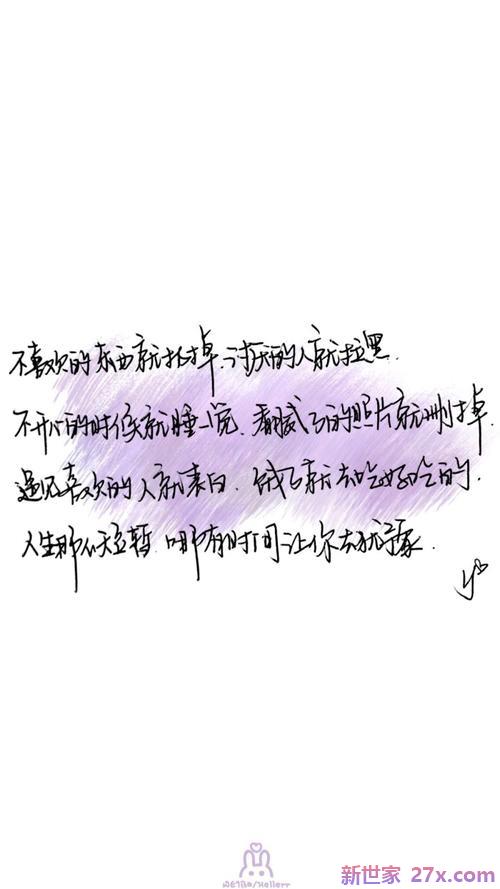 不喜欢的东西就扔掉.讨厌的人就拉黑.
不开心的时候就睡一觉.看腻了的照片就删掉.
遇见喜欢的人就表白.饿了就去吃好吃的.
人生那么短暂.哪有时间让你去犹豫.
WEIBO/Hellerr
新世家 27x.com